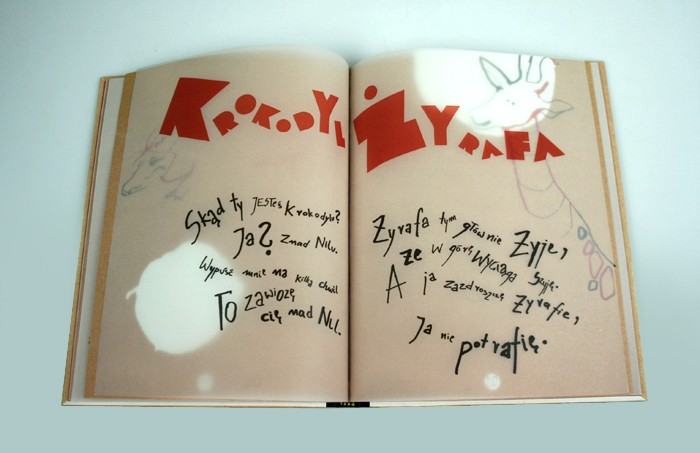 KROKODYL
Skąd ty jesteś krokodylu?
Ja? Znad Nilu.
Wypuść mnie na kilka chwil
To zawiozę
cię nad Nil.
ŻYRAFA
Żyrafa tym głównie żyje,
że w górę wyciąga szyję.
A ja zazdroszczę żyrafie,
Ja nie
potrafię.